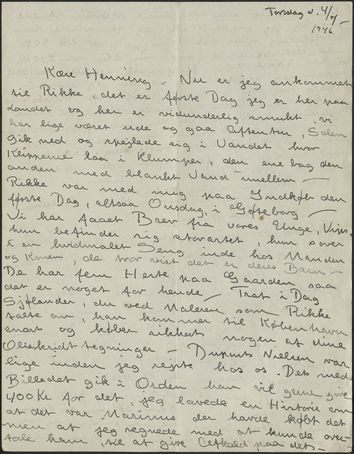 Torsdag d. 4/7 –
1946.
Kære Henning – Nu er jeg ankommet
til Rikke, det er første Dag jeg er her paa
Landet og her er vidunderlig smukt, vi
har lige været ude og gaa Aftentur, Solen
gik ned og spejlede sig i Vandet hvor
Klipperne laa i Klumper, den ene bag den
anden med blankt Vand imellem –
Rikke var med mig paa Indkøb den
første Dag, altsaa Onsdag, i Gøteborg –
Vi har faaet Brev fra vores Unge,
hun befinder sig storartet, hun sover
i en hvidmalet Seng inde hos Manden
og Konen, de tror vist det er deres Barn –
De har fem Heste paa Gaarden saa
det er noget for hende – Traf i Dag
Sjølander, du ved Maleren som Rikke
talte om, han kommer til København
snart og køber sikkert nogen af mine
Oliekridttegninger – Dupont Nielsen var
lige inden jeg rejste hos os. Det med
Billedet gik i Orden han vil gerne give
400 Kr for det, jeg lavede en Historie om
at det var Marinus der havde købt det
men at jeg regnede med at kunde over-
tale ham til at give Afkald paa det –